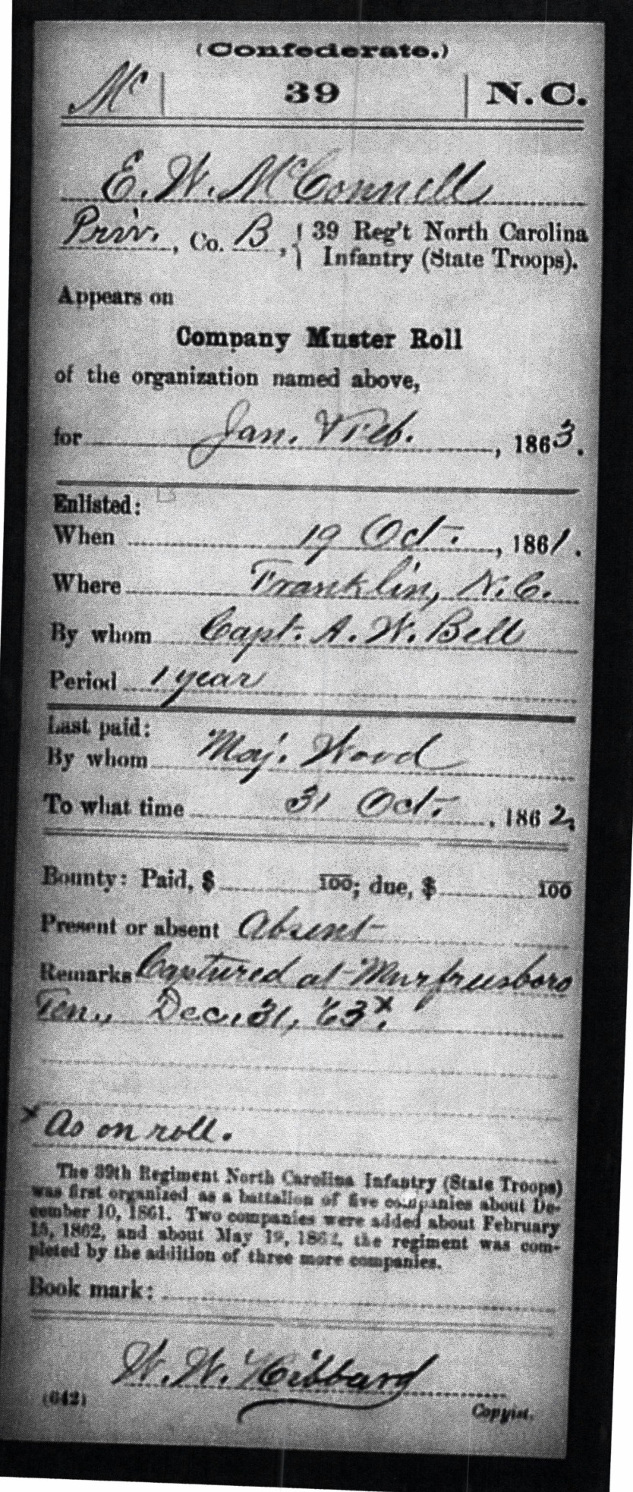 (Confederate.)
Mc | 39 | N.C.
E. W. McConnell
Priv., Co. B, { 39 Reg't North Carolina
Infantry (State Troops).
Appears on
Company Muster Roll
of the organization named above,
for Jan. & Feb., 1863.
Enlisted:
When 19 Oct., 1861.
Where Franklin, N.C.
By whom Capt. A. W. Bell
Period 1 year
Last paid:
By whom Maj. Wood
To what time 31 Oct., 1862,
Bounty: Paid, $ 100; due, $ 100
Present or absent Absent
Remarks Captured at Murfreesboro
Ten., Dec. 31, 63x.
x As on roll.
The 39th Regiment North Carolina Infantry (State Troops)
was first organized as a battalion of five companies about De-
cember 10, 1861. Two companies were added about February
15, 1862, and about May 19, 1862, the regiment was com-
pleted by the addition of three more companies.
Book mark:
W. W. Hibbard
(642) Copyist.